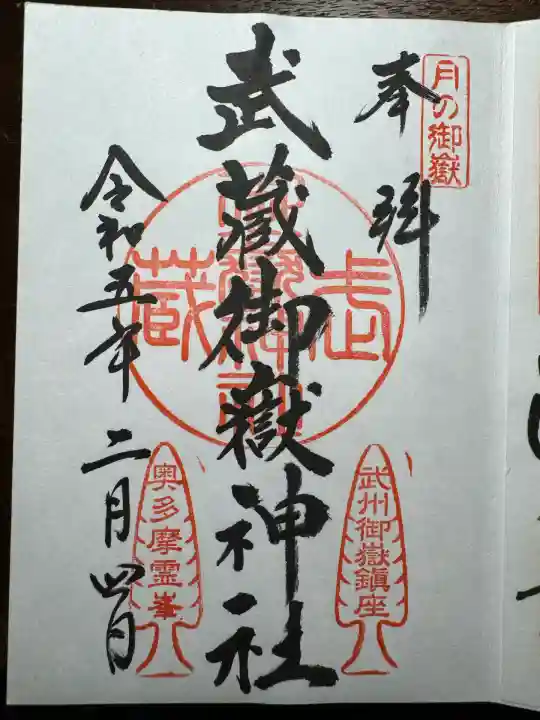 月の御嶽
奉拝
武蔵御嶽神社
武州御嶽鎮座
奥多摩霊峯
令和五年二月四日